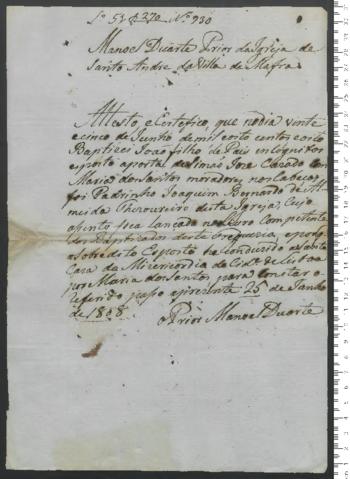 Lº 51 f 270 Nº 930
Manoel Duarte Prior da Igreja de
Santo Andre da Villa de Mafra
Attesto e Certefico, que no dia vente
e cinco de Junho de mil oito centos e oito
Baptizei João filho de Pais incognitos
exposto a portal de Jozé Cazado com
Maria dos Santos moradores no
foi Padrinho Joaquim Bernardo de Al-
meida Thezoureiro desta Igreja, Cujo
asento fica lançado no Livro competente
dos Baptizados desta Freguezia, e pode
o sobredito Exposto ser conduzido a Santa
Caza da Mizericordia da Cide. de Lisboa
por Maria dos Santos, para constar o
referido paso a prezente 25 de Junho
de 1808
o Prior Manoel Duarte